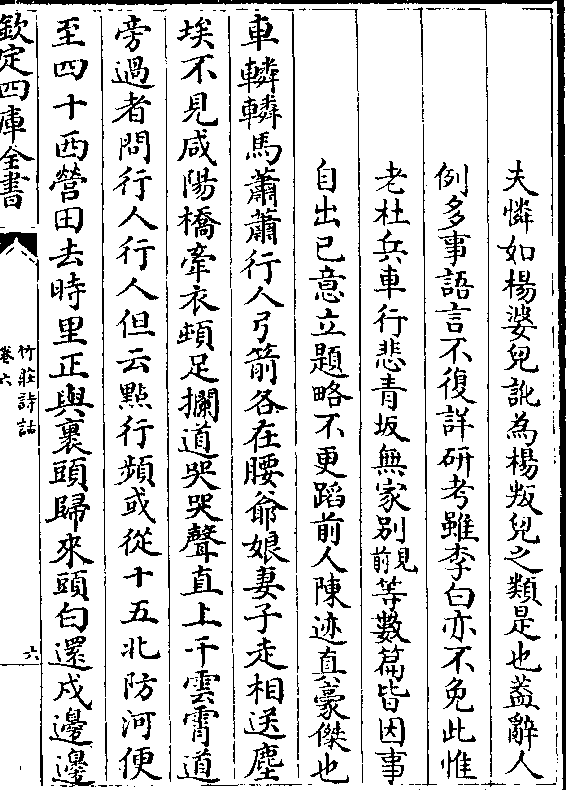 夫憐如楊婆兒訛為楊叛兒之類是也葢辭人
例多事語言不復詳研考雖李白亦不免此惟
老杜兵車行悲青坂無家别見前等數篇皆因事
自出已意立題略不更蹈前人陳迹真豪傑也
車轔轔馬蕭蕭行人弓箭各在腰爺娘妻子走相送塵
埃不見咸陽橋牽衣頓足攔道哭哭聲直上干雲霄道
旁過者問行人行人但云點行頻或從十五北防河便
至四十西營田去時里正與裹頭歸來頭白還戍邊邊
欽定四庫全書
竹莊詩話
卷六
六